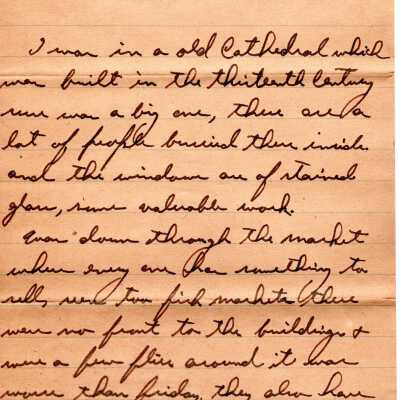 I was in a old Cathedral which
was built in the thirteenth Century
sure was a big one, there are a
lot of people burried there inside
and the windows are of stained
glass, some valuable work.
Was down through the market
where every one has something to
sell, seen two fish markets (there
were no front to the buildings &
were a few flies around it was
worse than friday, they also have